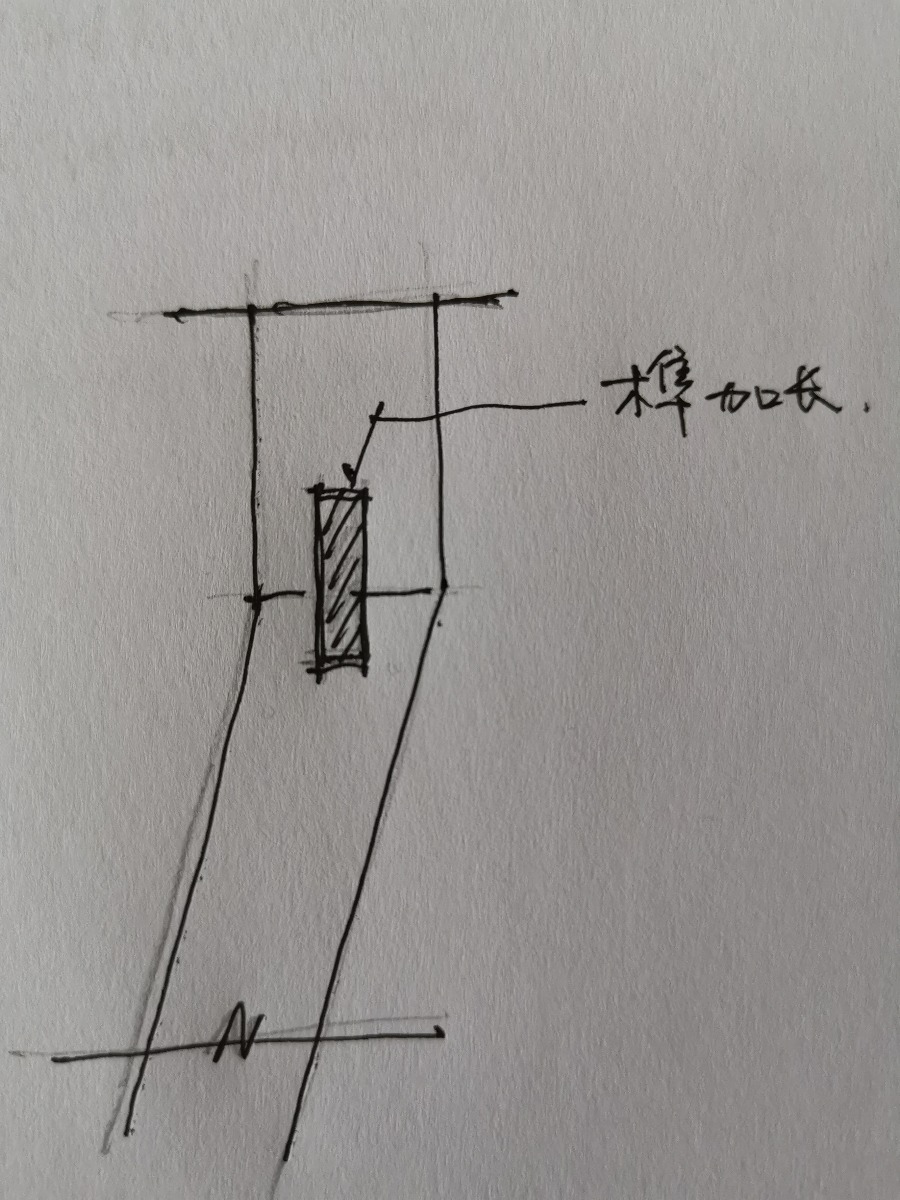 榫加长.